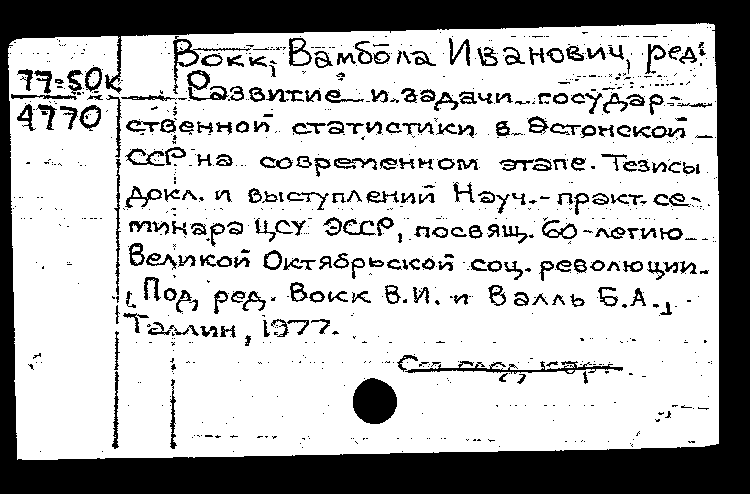 Вокк, Вамбола Иванович, ред.
77-50к
4770
Развитие и задачи государ-
ственной статистики в Эстонской
ССР на современном этапе. Тезисы
докл. и выступлений Науч.-практ. се-
минара ЦСУ ЭССР, посвящ. 60-летию
Великой Октябрьской соц. революции.
[Под ред. Вокк В.И. и Валль Б.А.]
Таллин, 1977.